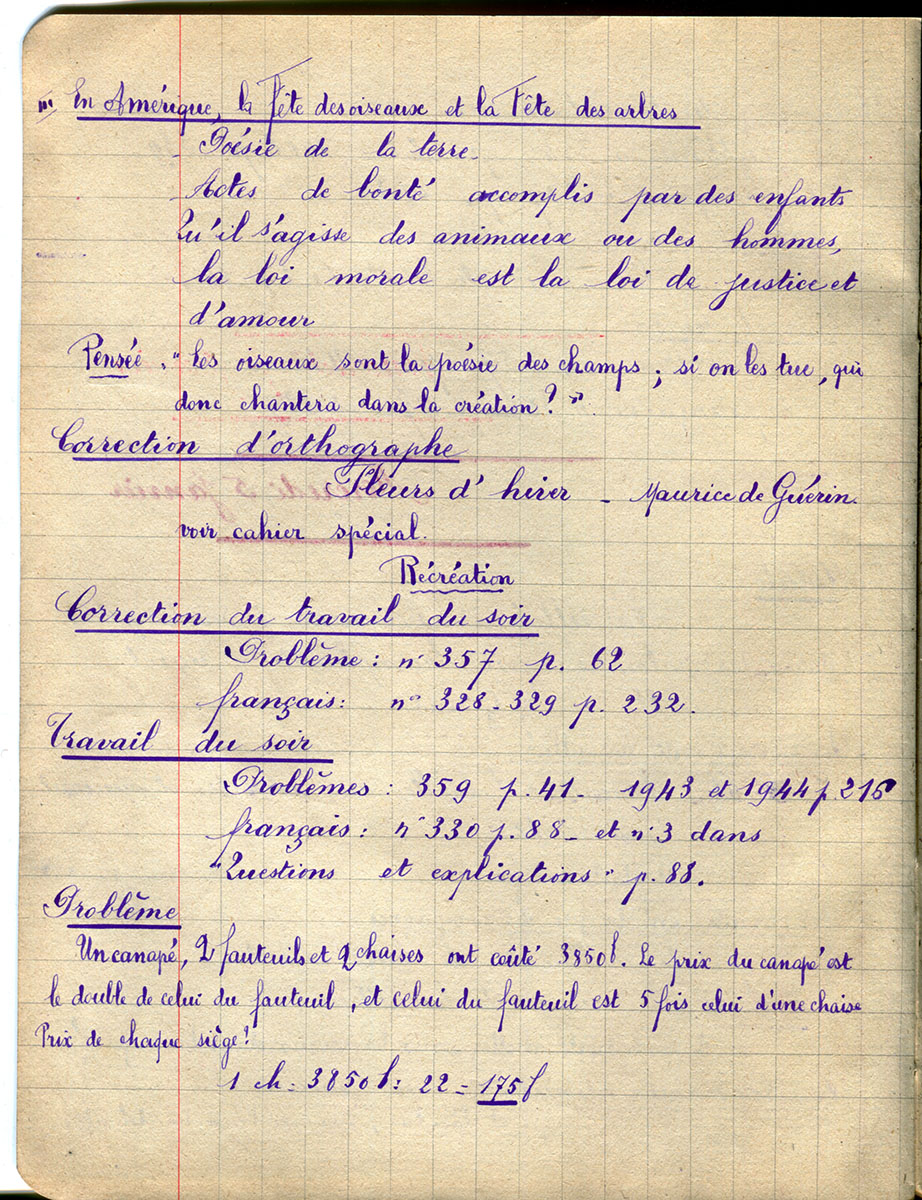 III En Amérique, la fête des oiseaux et la Fête des arbres
- Poésie de la terre.
Actes de bonté accomplis par des enfants
Qu'il s'agisse des animaux ou des hommes,
la loi morale est la loi de justice et
d'amour
Pensée : " Les oiseaux sont la poésie des champs ; si on les tue, qui
donc chantera dans la création ? "
Correction d'orthographe
Fleurs d'hiver - Maurice de Guérin.
voir cahier spécial.
Récréation
Correction du travail du soir
Problème : n° 357 p. 62
français : n° 328 - 329 p. 232.
Travail du soir
Problèmes : 359 p. 41 - 1943 et 1944 p. 216
français : n° 330 p. 88 - et n° 3 dans
"Questions et explications" p. 88.
Problème
Un canapé, 2 fauteuils et 2 chaises ont coûté 3850f. Le prix du canapé est
le double de celui du fauteuil, et celui du fauteuil est 5 fois celui d'une chaise
Prix de chaque siège !
1 ch = 3850f : 22 = 175f